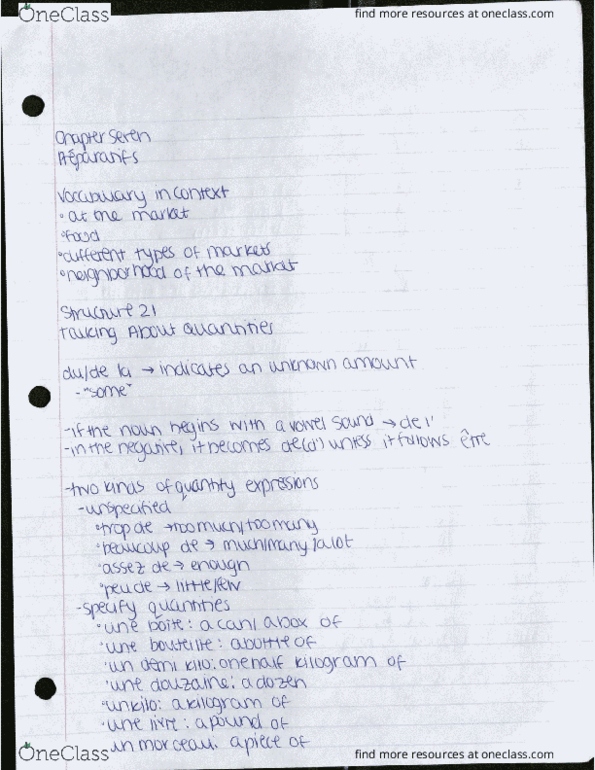 OneClass
find more resources at oneclass.com
Chapter Seven
Préparatifs
Vocabulary in context
• at the market
• food
• different types of markets
• neighborhood of the market
Structure 21
Talking About Quantities
du/de la → indicates an unknown amount
- "some"
- if the noun begins with a vowel sound → de l'
- in the negative, it becomes de(d') unless it follows être
- two kinds of quantity expressions
- unspecified
• trop de → too much/too many
• beaucoup de → much/many/a lot
• assez de → enough
• peu de → little/few
- specify quantities
• une boîte: a can/ a box of
• une bouteille: a bottle of
• un demi kilo: one half kilogram of
• une douzaine: a dozen
• un kilo: a kilogram of
• une livre: a pound of
• un morceau: a piece of
OneClass
find more resources at oneclass.com